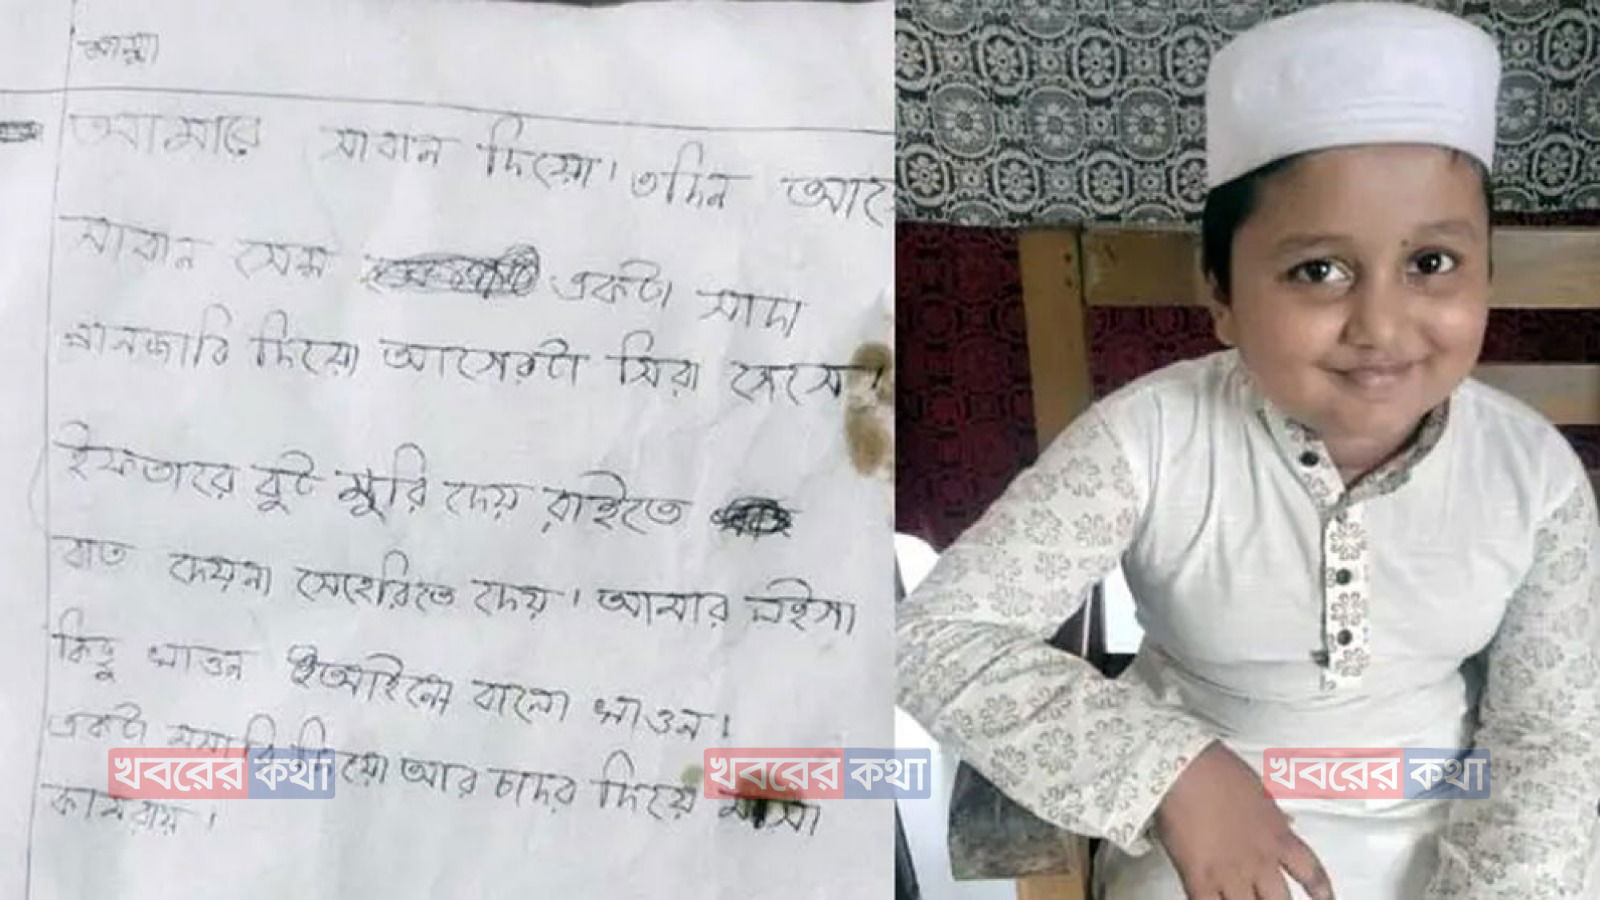 আম্মা
আমারে সাবান দিয়ো। ৩দিন আগে
সাবান সেস একটা সাদা
পানজাবি দিয়ো আগেরটা সিরা গেসে।
ইফতারে বুট মুরি দেয় রাইতে
বাত দেয়না সেহেরিতে দেয়। আমার লইগা
কিছু খাওন আইনো বালো খাওন।
একটা মসারি দিয়ো আর চাদর দিয়ো মসা
কামরায়।
খবরের কথা
খবরের কথা
খবরের কথা